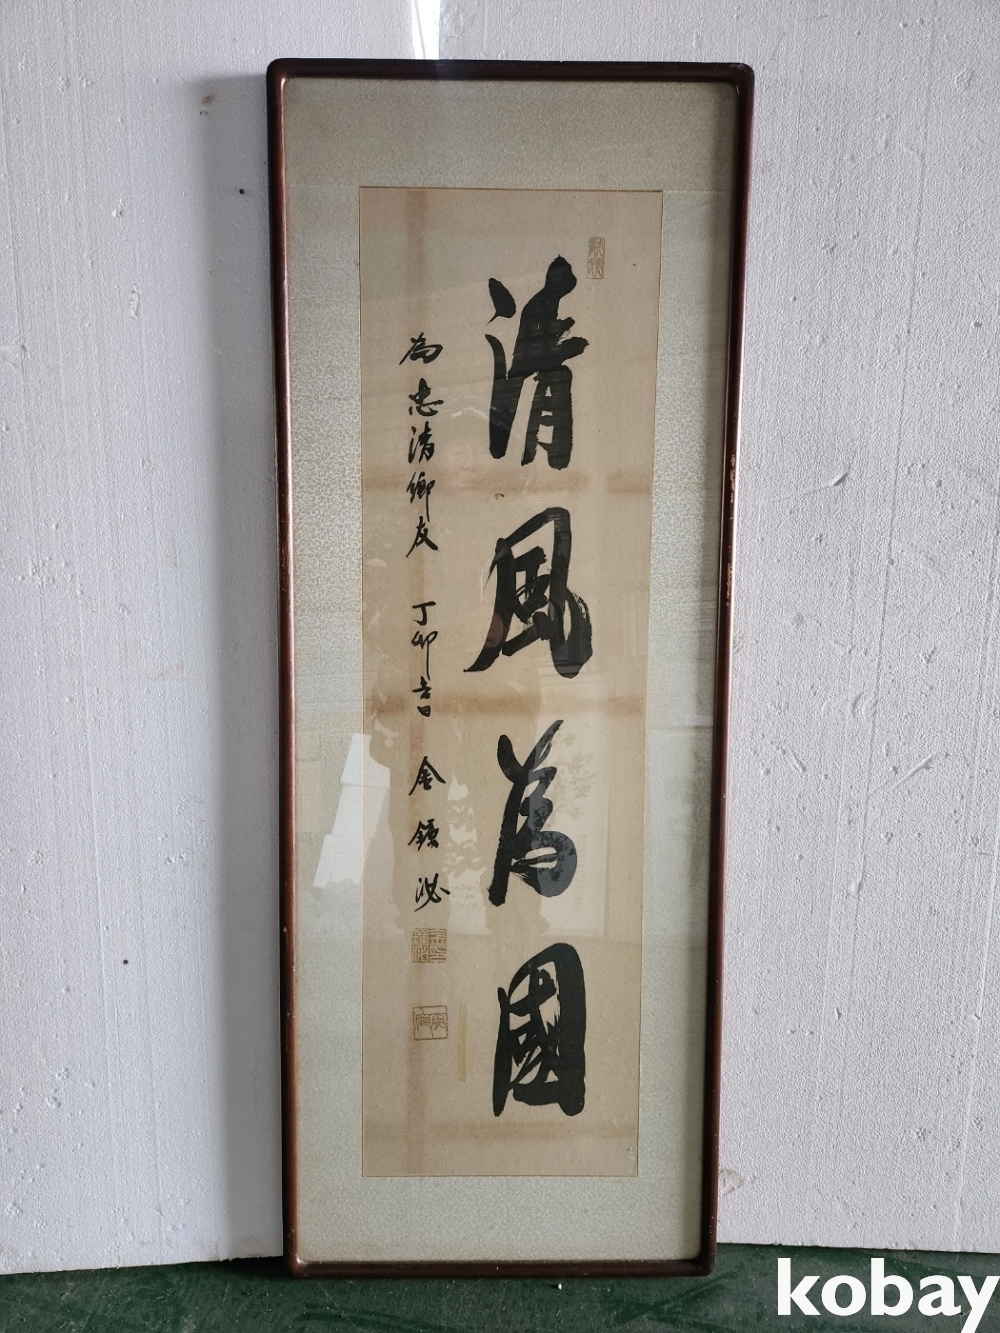 清風為國
為忠清鄉友 丁卯春 金鐄泌
kobay